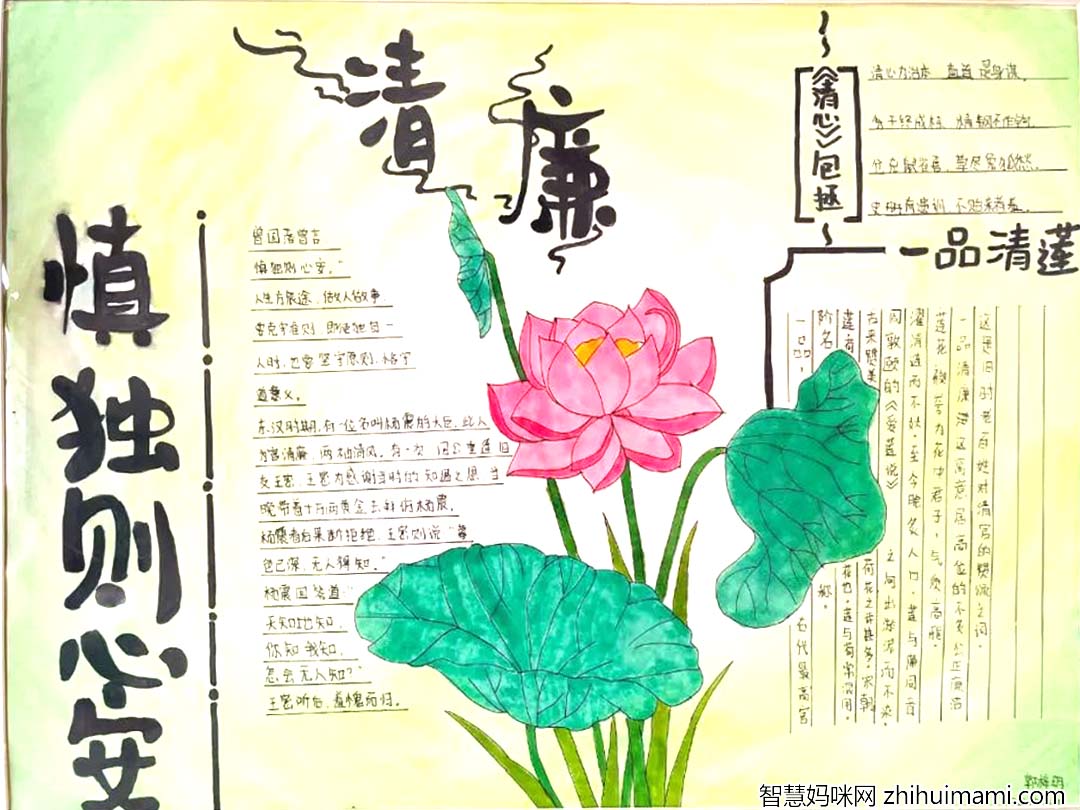 清廉
慎独则心安
曾国藩曾言
慎独则心安。"
人生方旅途,做人做事
要克守准则,即使独自一
人时,也要坚守原则,恪守
道意义。
东汉时期,有一位名叫杨震的大臣,此人
为官清廉,两袖清风。有一次
友王密,王密为感谢当时的知遇之恩,当
晚带着十万两黄金去拜访杨震。
杨震看后果断拒绝,王密则说"暮
色已深,无人得知。"
杨震回答道:"
天知地知,
你知我知,
怎会无人知?"
王密听后,羞愧而归。
《清心》包拯
清心为治本,直道是身谋。
秀干终成栋,精钢不作钩。
仓充鼠雀喜,草尽兔狐愁。
史册有遗训,不贻来者羞。
一品清莲
这是旧时老百姓对清官的赞颂之词
一品清廉
居高位的不多
莲花被誉为花中君子,气质高雅。
濯清涟而不妖,至今脍炙人口,莲与廉同音
周敦颐的《爱莲说》
之间出淤泥而不染,
古来赞美
荷花之诗甚多,宋朝
莲,有
花也,莲与荷常混用,
阶名
称。
一品,
古代最高官
智慧妈咪网 zhihuimami.com